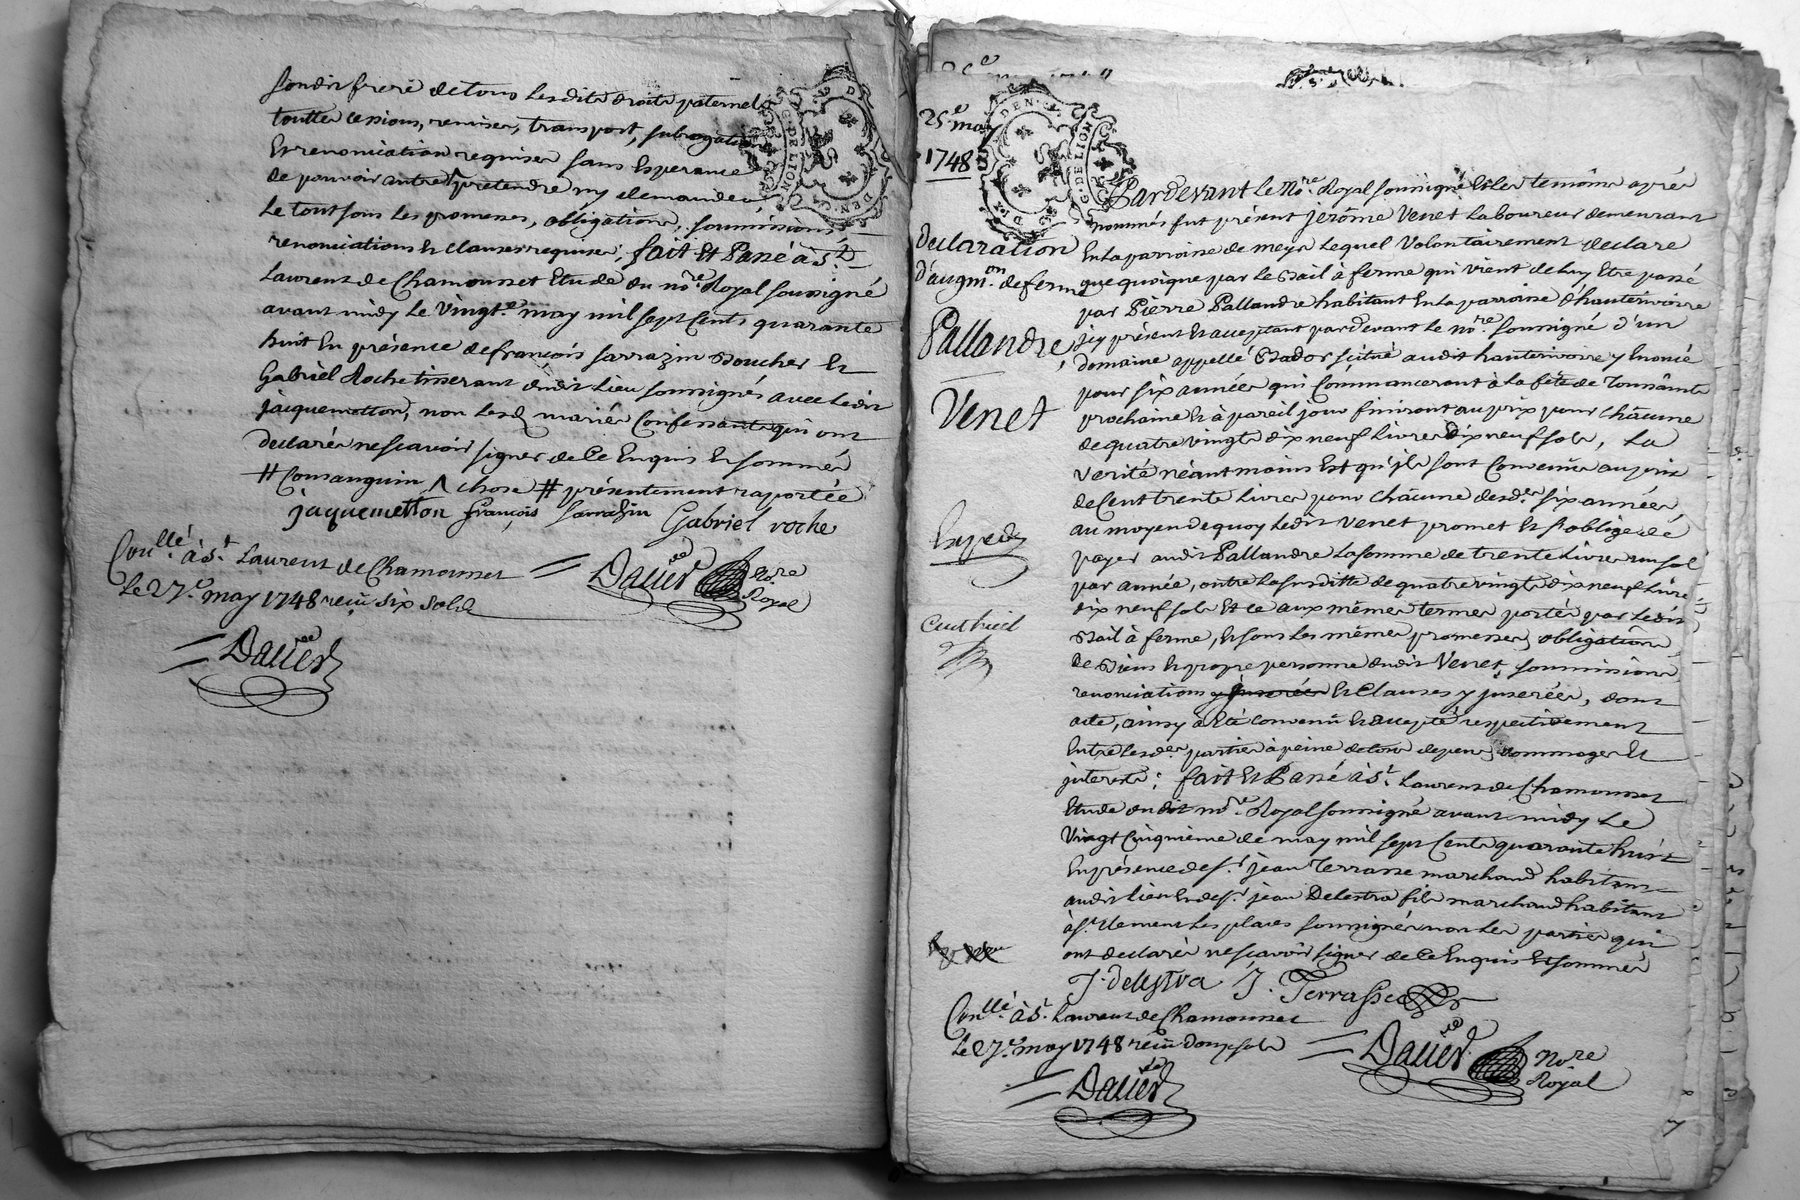 sondit frere de tous lesdits droits paternels
toutte cessions, remises, transport, subrogations
Et renonciation requises sans Esperance
de pouvoir autre ^ pretendre ny demander
Le tout sous les promesses, obligations, soumissions
renonciations Et clauses requises; fait Et Passé à St.
Laurent de Chamousset Etude du nore. Royal soussigné
avant midy Le Vingte. may mil sept Cents quarante
huit En présence de françois sarrazin Boucher Et
Gabriel Roche tisserant dudit Lieu soussignés avec ledit
jaquemetton, non Lesd. mariés Confessants qui ont
declarés ne scavoir signer de Ce Enquis Et sommés
# Consanguin ^ chose # présentement raportée
jaquemetton françois sarrazin Gabriel roche
Conllé. à St. Laurent de Chamousset
Le 27e. may 1748 reçu six sols
DaveR Nore Royal
Daver
25e. may
1748
DEN.
G. DE LION
declaration
d'augmon. de ferme
Pallandre,
Venet
Exped
Par devant Le Nore. Royal soussigné Et Les temoins aprés
nommés fut présent jerôme Venet Laboureur demeurant
En La parroisse de meys Lequel Volontairement declare
que quoique par Le Bail à ferme qui vient de Luy Etre passé
par Pierre Pallandre habitant En La parroisse d'hauterivoire
icy présent Et acceptant par devant Le nore. soussigné d'un
domaine appellé Bador scitué audit hauterivoire y Enoncé
pour six années qui Commanceront à La fête de Toussaints
prochaine Et à pareil jour finiront au prix pour châcune
de quatre vingts dix neuf Livres Dix neuf sols, La
Verité néantmoins Est qu'ils sont Convenus au prix
de Cent trente Livres pour châcune desd. six années,
au moyen de quoy Ledit Venet promet Et s'oblige de
payer audit Pallandre La somme de trente Livres un sol
par année, outre La susditte de quatre vingts dix neuf Livres
dix neuf sols Et ce aux mêmes termes portés par Ledit
Bail à ferme, Et sous Les mêmes promesses, obligations
de Biens Et propre personne dudit Venet, soumissions
renonciations y jnserées Et Clauses y jnserées, dont
acte, ainsy a Eté convenû Et accepté respectivement
Entre Lesdes. parties à peine de tous depens dommages Et
jnterests; fait Et Passé à St. Laurent de Chamousset
Etude dudit nore. Royal soussigné avant midy Le
Vingt Cinquieme de may mil sept Cents quarante huit
En présence de sr. jean Terrasse marchand habitant
audit lieu Et de sr. jean Delestra fils marchand habitant
à St. Clement Les places soussignés non Les parties qui
ont declarés ne scavoir signer de Ce Enquis Et sommés
J. delestra J. Terrasse
Conllé. à St. Laurent de Chamousset
Le 27e. may 1748 reçu douze sols
DaveR Nore Royal
Daver